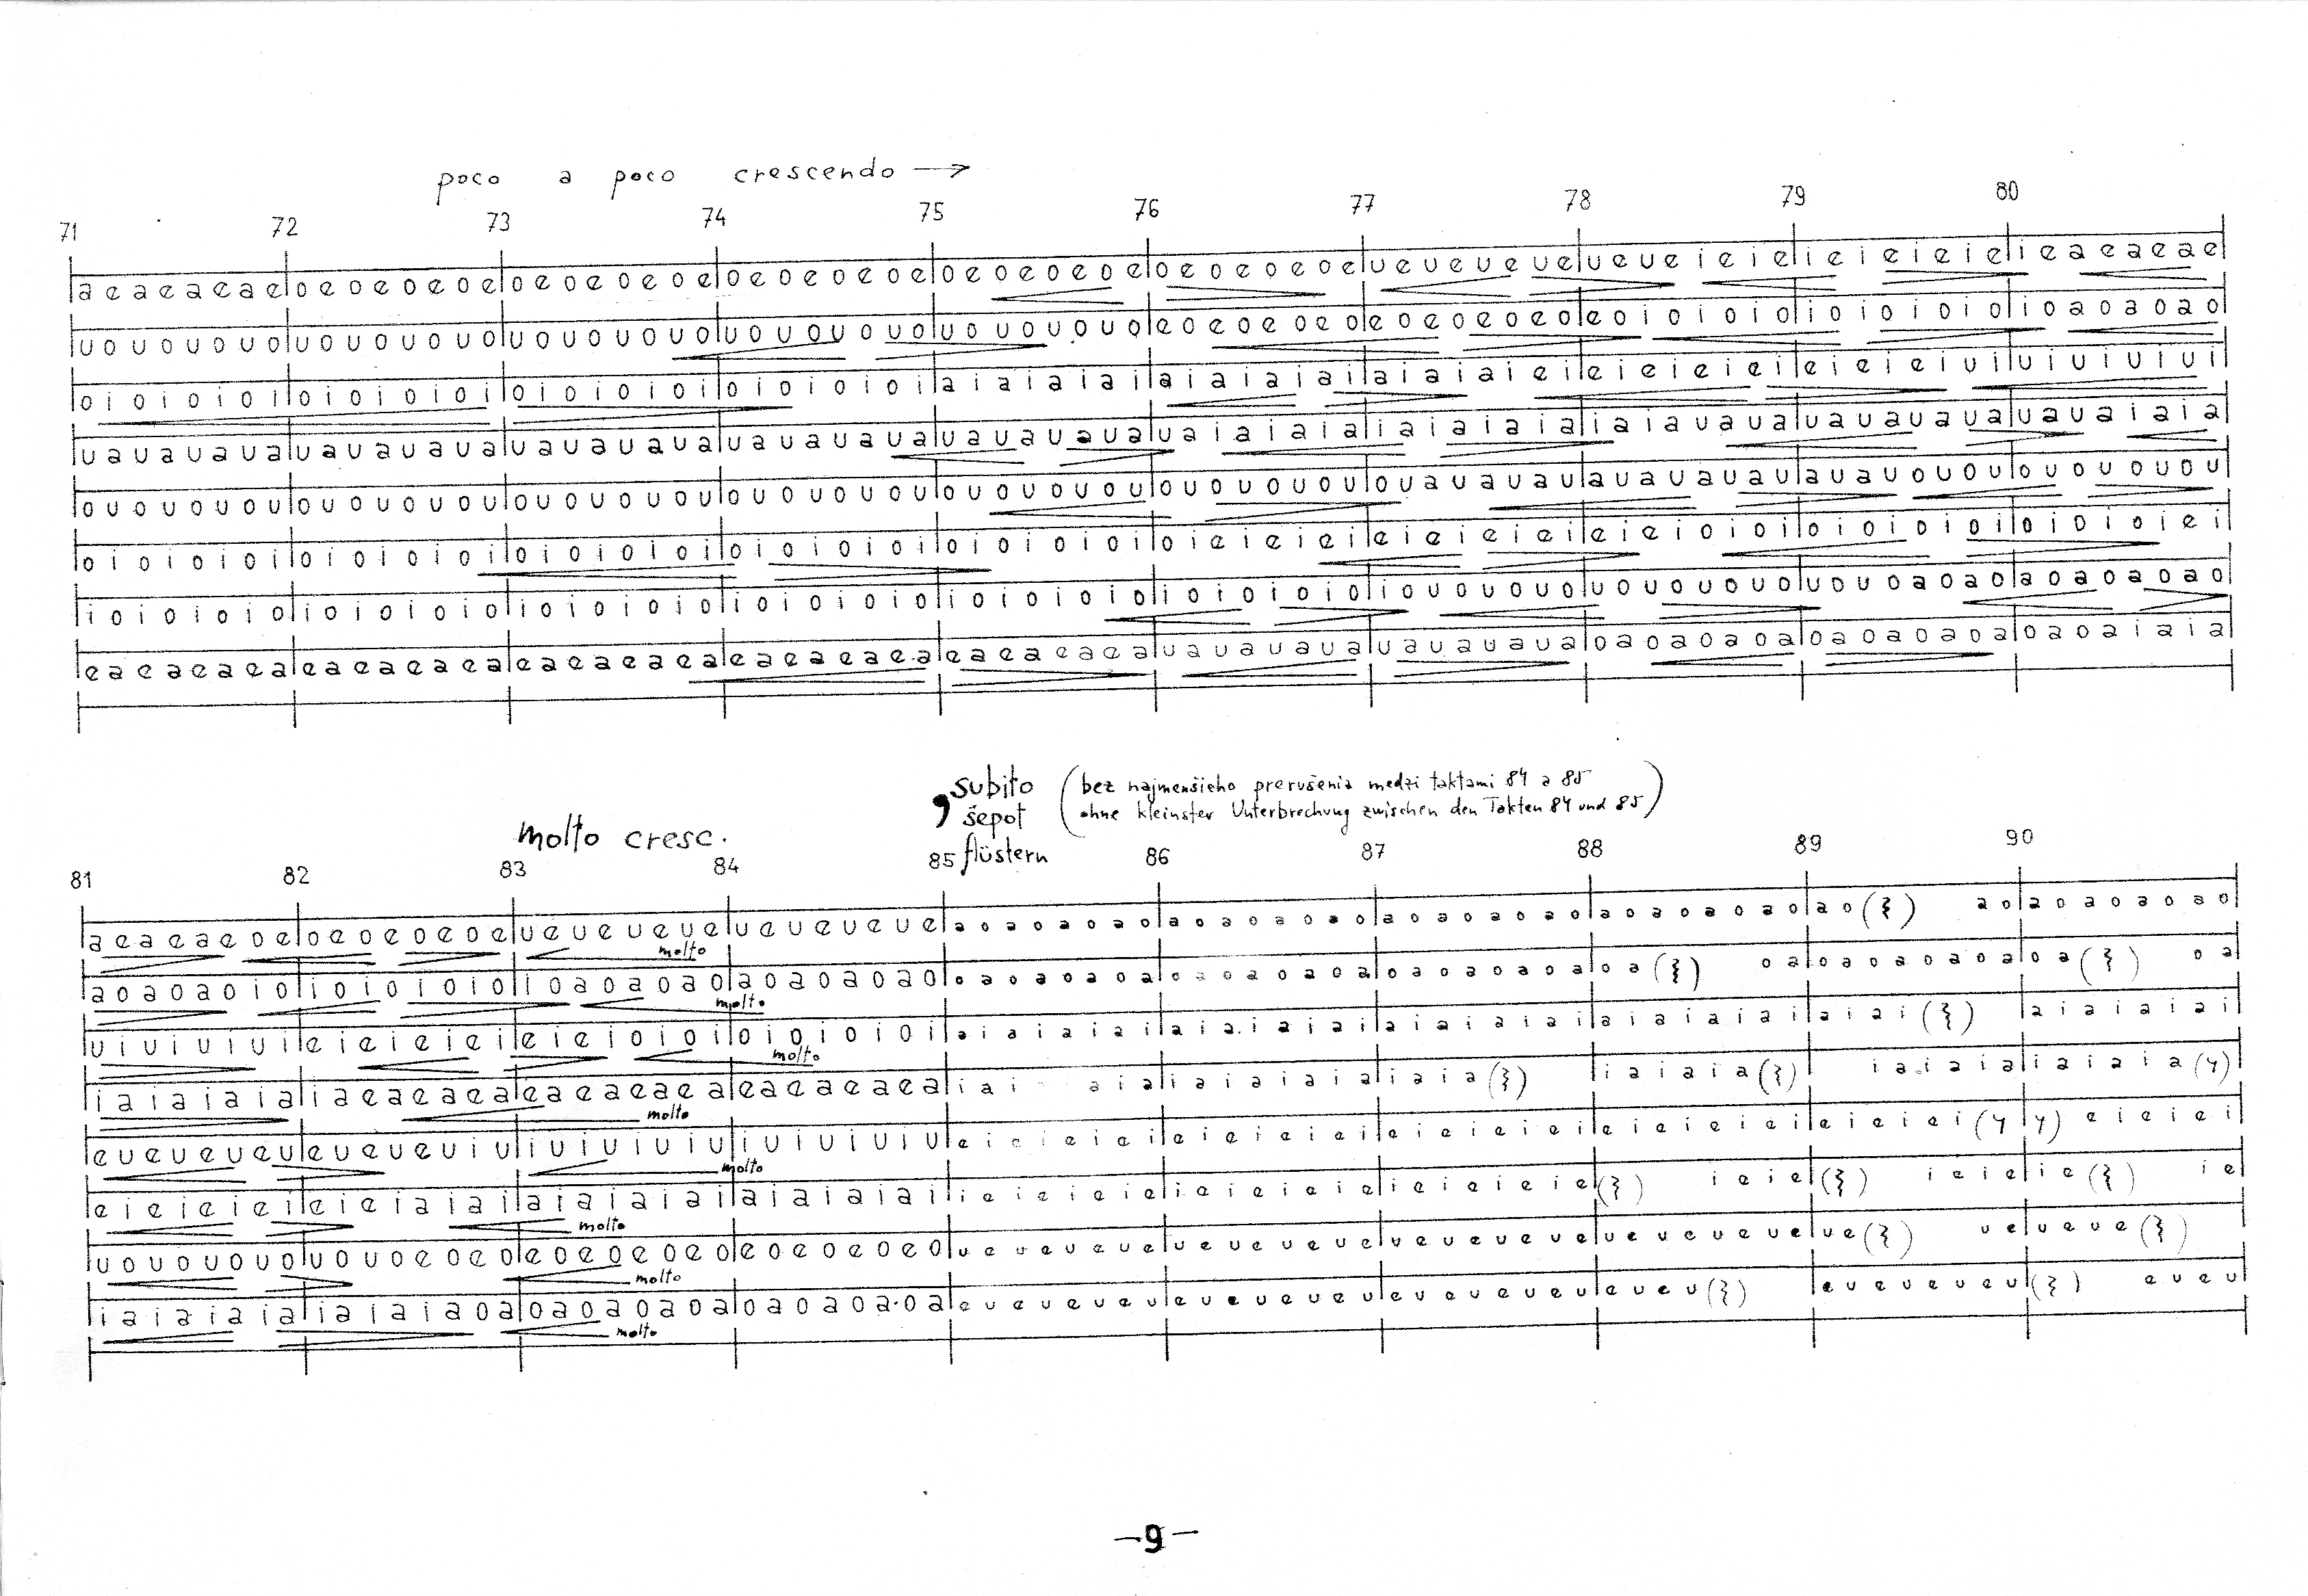 poco a poco crescendo
71 72 73 74 75 76 77 78 79 80
a e a e a e a e o e o e o e o e o e o e o e o e o e o e o e o e o e o e o e o e o e o e o e o e u e u e u e u e u e u e i e i e i e i e i e i e i e a e a e a e
u o u o u o u o u o u o u o u o u o u o u o u o u o u o u o u o u o u o u o u o e o e o e o e o e o e o e o e o e o i o i o i o i o i o i o i o i o a o a o a o
o i o i o i o i o i o i o i o i o i o i o i o i o i o i o i o i a i a i a i a i a i a i a i a i a i a i a i e i e i e i e i e i e i e i e i u i u i u i u i u i
u a u a u a u a u a u a u a u a u a u a u a u a u a u a u a u a u a u a u a u a u a i a i a i a i a i a i a i a i a i a u a u a u a u a u a u a u a u a i a i a
o u o u o u o u o u o u o u o u o u o u o u o u o u o u o u o u o u o u o u o u o u o u o u o u o u a u a u a u a u a u a u a u a u a u o u o u o u o u o u o u
o i o i o i o i o i o i o i o i o i o i o i o i o i o i o i o i o i o i o i o i o i e i e i e i e i e i e i e i e i e i o i o i o i o i o i o i o i o i o i e i
i o i o i o i o i o i o i o i o i o i o i o i o i o i o i o i o i o i o i o i o i o i o i o i o i o u o u o u o u o u o u o u o u o u o a o a o a o a o a o a o
e a e a e a e a e a e a e a e a e a e a e a e a e a e a e a e a e a e a e a e a u a u a u a u a u a u a u a u a o a o a o a o a o a o a o a o a o a o a i a i a
molto cresc.
, subito (bez najmenšieho prerušenia medzi taktami 84 a 85
šepot ohne kleinster Unterbrechung zwischen den Takten 84 und 85)
flüstern
81 82 83 84 85 86 87 88 89 90
a e a e a e o e o e o e o e o e u e u e u e u e u e u e u e u e a o a o a o a o a o a o a o a o a o a o a o a o a o a o a o a o a o ( ) a o a o a o a o a o
molto
a o a o a o i o i o i o i o i o i o a o a o a o a o a o a o a o o a o a o a o a o a o a o a o a o a o a o a o a o a ( ) o a o a o a o a o a o a ( ) o a
molto
u i u i u i u i e i e i e i e i e i e i o i o i o i o i o i o i a i a i a i a i a i a i a i a i a i a i a i a i a i a i a i a i a i a i ( ) a i a i a i a i
molto
i a i a i a i a i a e a e a e a e a e a e a e a e a e a e a e a i a i a i a i a i a i a i a i a i a ( ) i a i a i a ( ) i a i a i a i a i a i a ( )
molto
e u e u e u e u e u e u e u i u i u i u i u i u i u i u i u i u e i e i e i e i e i e i e i e i e i e i e i e i e i e i e i e i e i e i e i ( ) e i e i e i
molto
e i e i e i e i e i e i a i a i a i a i a i a i a i a i a i a i i e i e i e i e i e i e i e i e i e i e i e i e ( ) i e i e ( ) i e i e i e ( ) i e
molto
u o u o u o u o u o u o e o e o e o e o e o e o e o e o e o e o u e u e u e u e u e u e u e u e u e u e u e u e u e u e u e u e u e ( ) u e u e u e ( )
molto
i a i a i a i a i a i a i a o a o a o a o a o a o a o a o a o a e u e u e u e u e u e u e u e u e u e u e u e u e u e u ( ) e u e u e u e u ( ) e u e u
molto
–9–